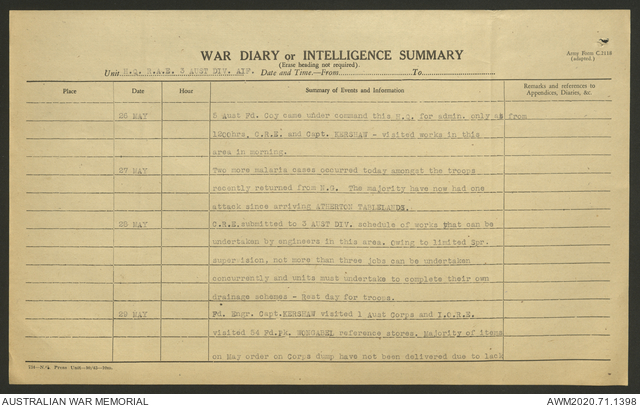 WAR DIARY or INTELLIGENCE SUMMARY
Army Form C.2118
(adapted.)
(Erase heading not required).
Unit H.Q. R.A.E. 3 AUST DIV. AIF. Date and Time.—From To
Place Date Hour Summary of Events and Information Remarks and references to Appendices, Diaries, &c.
26 MAY 5 Aust Fd. Coy came under command this H.Q. for admin. only as from
1200hrs. C.R.E. and Capt. KERSHAW - visited works in this
area in morning.
27 MAY Two more malaria cases occurred today amongst the troops
recently returned from N.G. The majority have now had one
attack since arriving ATHERTON TABLELANDS.
28 MAY C.R.E. submitted to 3 AUST DIV. schedule of works that can be
undertaken by engineers in this area. Owing to limited Spr.
supervision, not more than three jobs can be undertaken
concurrently and units must undertake to complete their own
drainage schemes - Rest day for troops.
29 MAY Fd. Engr. Capt. KERSHAW visited 1 Aust Corps and I.O.R.E.
visited 54 Fd.Pk. WONGABEL reference stores. Majority of items
on May order on Corps dump have not been delivered due to lack
AUSTRALIAN WAR MEMORIAL AWM2020.71.1398